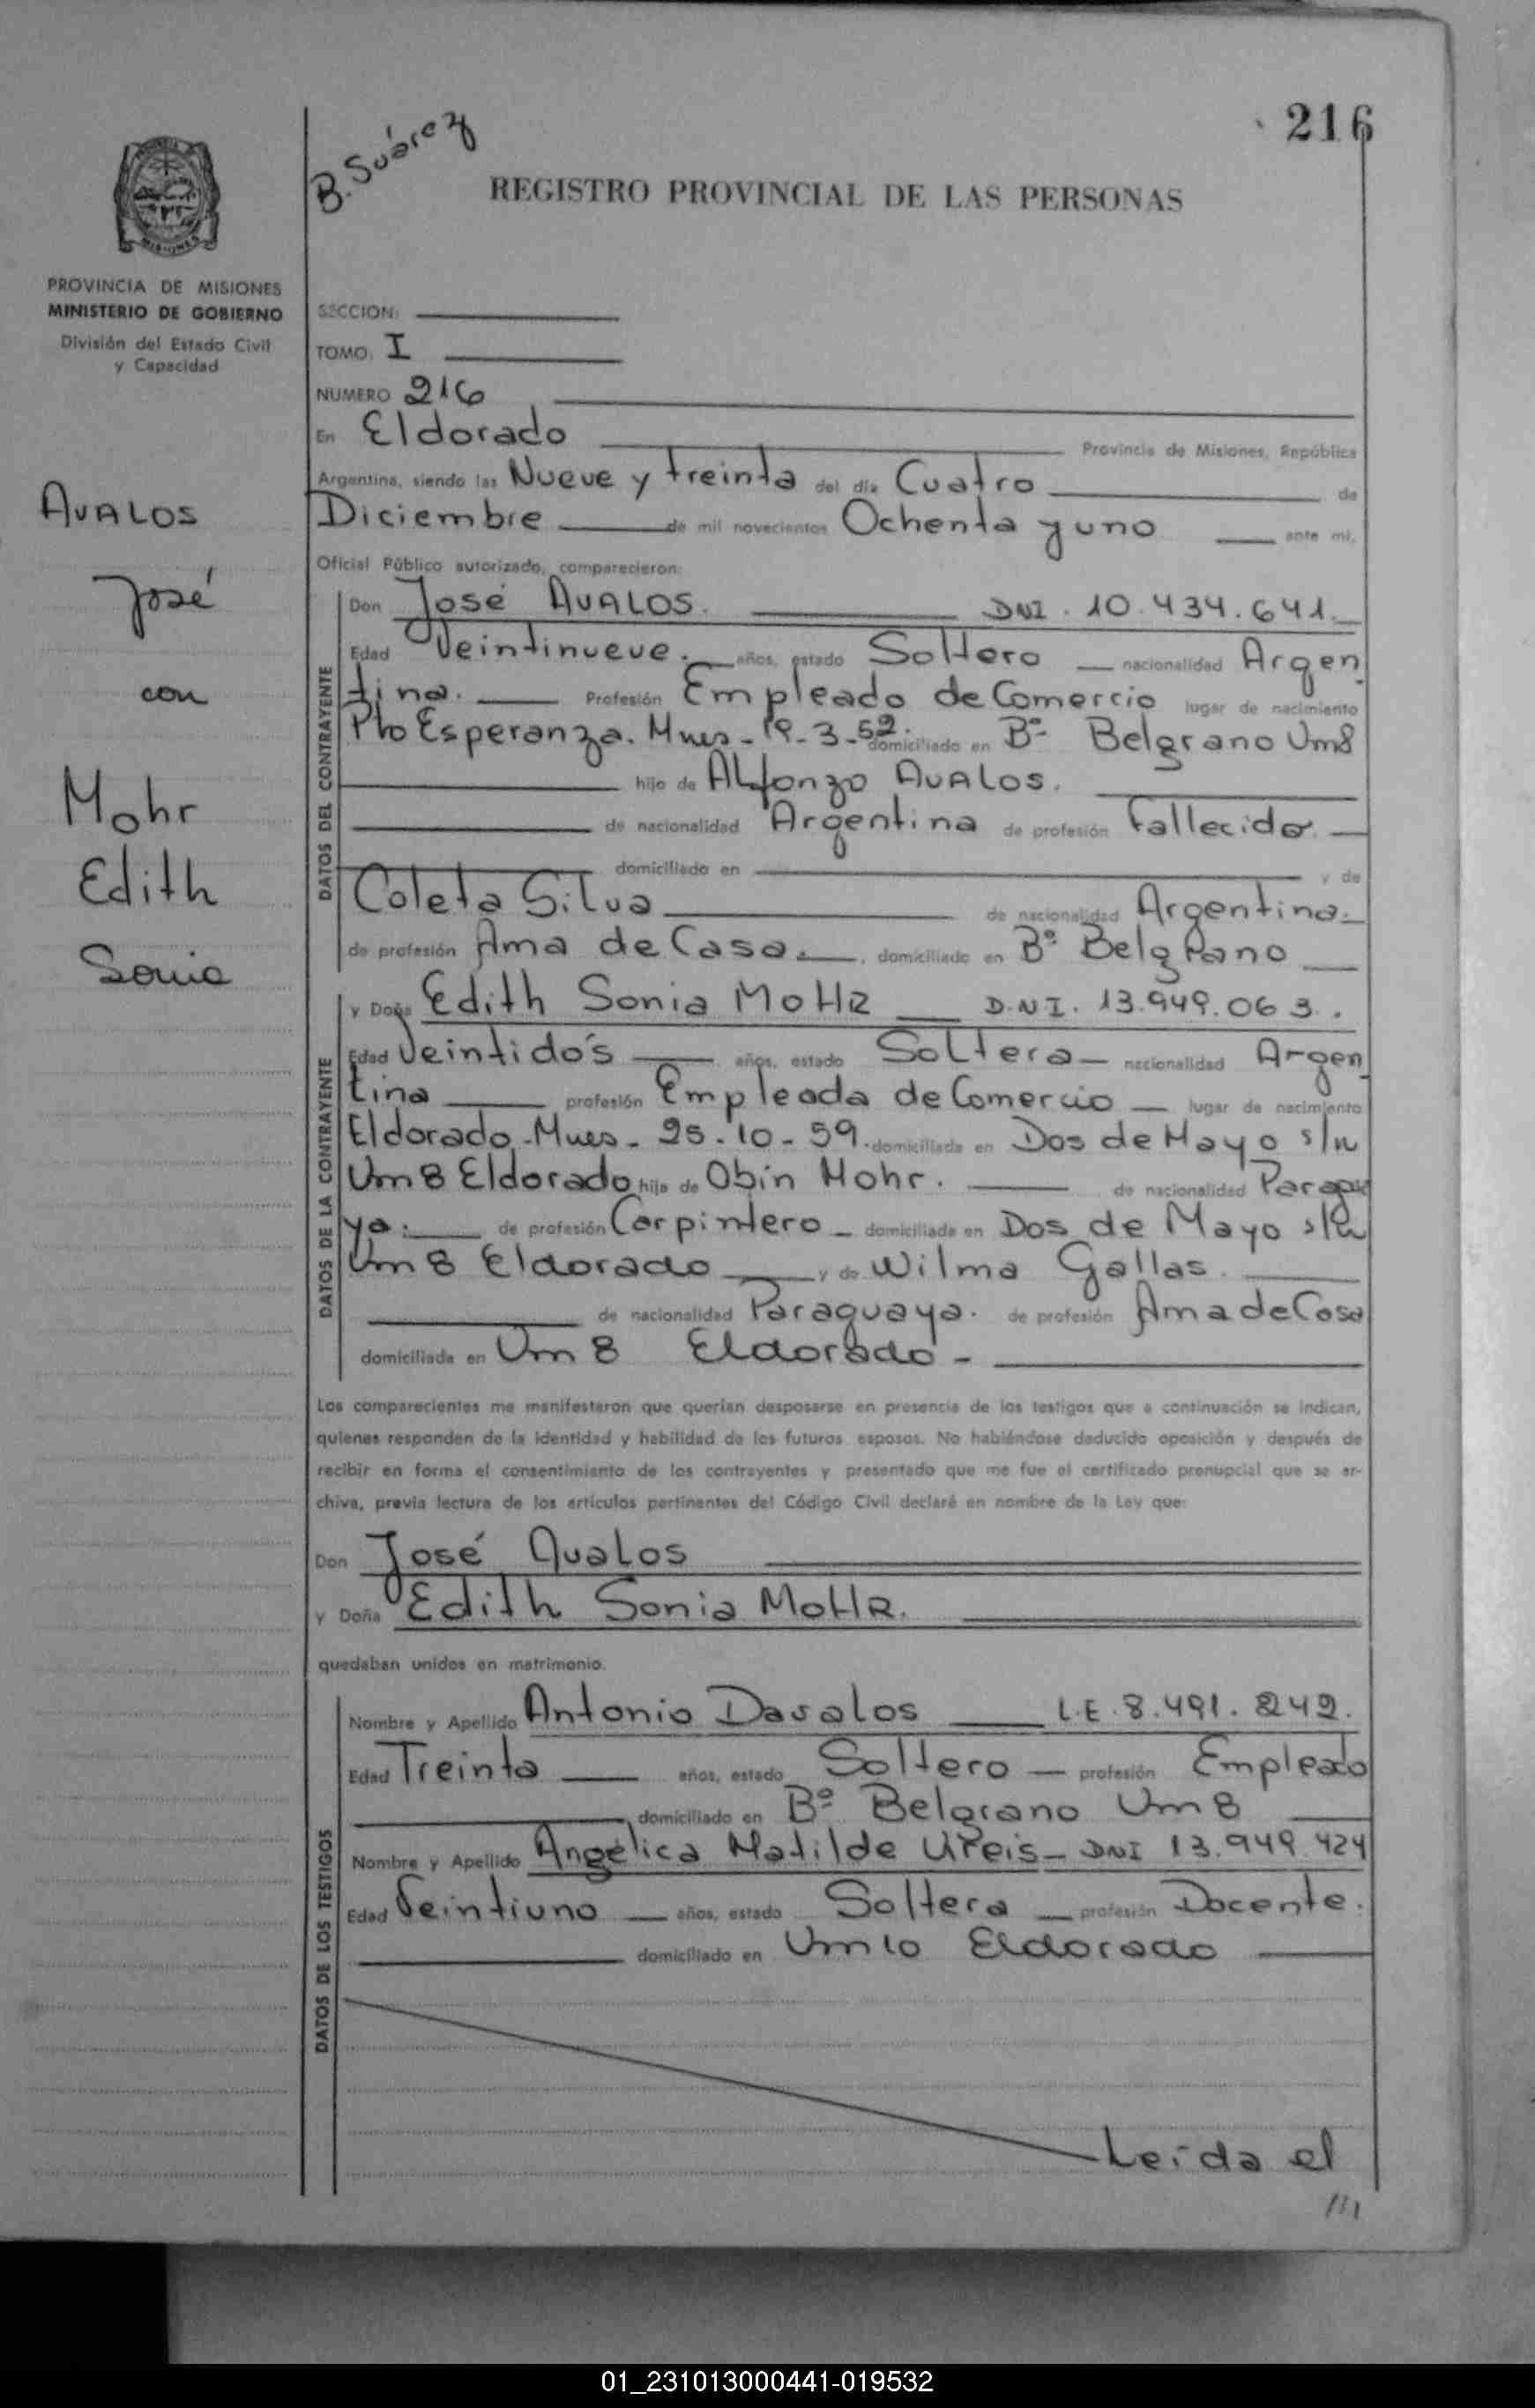 216
B. Suárez
REGISTRO PROVINCIAL DE LAS PERSONAS
MISIONES
PROVINCIA DE MISIONES
MINISTERIO DE GOBIERNO
División del Estado Civil
y Capacidad
SECCION:
TOMO: I
NUMERO 216
En Eldorado Provincia de Misiones, República
Argentina, siendo las Nueve y treinta del día Cuatro de
Diciembre de mil novecientos Ochenta y uno ante mí,
Oficial Público autorizado, comparecieron:
AVALOS
José
con
Mohr
Edith
Sonia
DATOS DEL CONTRAYENTE
Don José AVALOS. DNI. 10.434.641.
Edad Veintinueve. años, estado Soltero nacionalidad Argen
tina. Profesión Empleado de Comercio lugar de nacimiento
Pto Esperanza. Mnes - 19-3-52. domiciliado en Bº Belgrano Km8
hijo de Alfonzo AVALOS.
de nacionalidad Argentina de profesión Fallecido.
domiciliado en y de
Coleta Silva de nacionalidad Argentina.
de profesión Ama de Casa. , domiciliada en Bº Belgrano
DATOS DE LA CONTRAYENTE
y Doña Edith Sonia MOHR D.N.I. 13.949.063.
Edad Veintidós años, estado Soltera nacionalidad Argen
tina profesión Empleada de Comercio lugar de nacimiento
Eldorado - Mnes - 25-10-59. domiciliada en Dos de Mayo s/n
Km 8 Eldorado hija de Obin Mohr. de nacionalidad Paragua
ya. de profesión Carpintero - domiciliado en Dos de Mayo s/n
Km 8 Eldorado y de Wilma Gallas.
de nacionalidad Paraguaya. de profesión Ama de Casa
domiciliada en Km 8 Eldorado -
Los comparecientes me manifestaron que querían desposarse en presencia de los testigos que a continuación se indican,
quienes responden de la identidad y habilidad de los futuros esposos. No habiéndose deducido oposición y después de
recibir en forma el consentimiento de los contrayentes y presentado que me fue el certificado prenupcial que se ar-
chiva, previa lectura de los artículos pertinentes del Código Civil declaré en nombre de la Ley que:
Don José Avalos
y Doña Edith Sonia MOHR.
quedaban unidos en matrimonio.
DATOS DE LOS TESTIGOS
Nombre y Apellido Antonio Davalos L.E. 8.491.242.
Edad Treinta años, estado Soltero profesión Empleado
domiciliado en Bº Belgrano Km 8
Nombre y Apellido Angélica Matilde DNI 13.949.424
Edad Veintiuno años, estado Soltera profesión Docente.
domiciliado en Km 10 Eldorado
Leída el
///
01_231013000441-019532